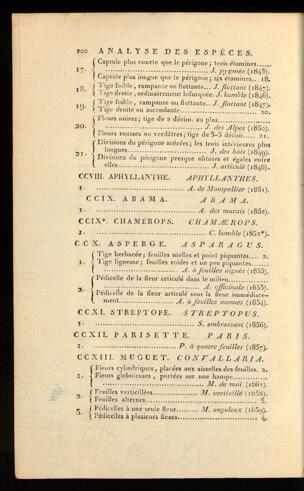 200 ANALYSE DES ESPÈCES.
17. Capsule plus courte que le périgone; trois étamines......
..................... J. pygmée (1846).
Capsule plus longue que le périgone; six étamines.. 18.
18. Tige foible, rampante ou flottante... J. flottant (1847).
Tige droite, ordinairement bifurquée. J. humble (1846).
19. Tige foible, rampante ou flottante... J. flottant (1847).
Tige droite ou ascendante.................. 20.
20. Fleurs noires; tige de 2 décim. au plus................
..................... J. des Alpes (1850).
Fleurs rousses ou verdâtres; tige de 3-5 décim..... 21.
21. Divisions du périgone acérées; les trois intérieures plus
longues................ J. des bois (1849).
Divisions du périgone presque obtuses et égales entre
elles..................... J. articulé (1848).
CCVIII. APHYLLANTHE. APHYLLANTHES.
1. ..................... A. de Montpellier (1851).
CCIX. ABAMA. ABAMA.
1. ..................... A. des marais (1852).
CCIX*. CHAMÉROPS. CHAMÆROPS.
1. ..................... C. humble (1852*).
CCX. ASPERGE. ASPARAGUS.
1. Tige herbacée; feuilles molles et point piquantes.... 2.
Tige ligneuse; feuilles roides et un peu piquantes......
..................... A. à feuilles aiguës (1855).
2. Pédicelle de la fleur articulé dans le milieu............
..................... A. officinale (1853).
Pédicelle de la fleur articulé sous la fleur immédiate-
ment................ A. à feuilles menues (1854).
CCXI. STREPTOPE. STREPTOPUS.
1. ..................... S. embrassant (1856).
CCXII. PARISETTE. PARIS.
1. ..................... P. à quatre feuilles (1857).
CCXIII. MUGUET. CONVALLARIA.
1. Fleurs cylindriques, placées aux aisselles des feuilles. 2.
Fleurs globuleuses, portées sur une hampe............
..................... M. de mai (1862).
2. Feuilles verticillées............ M. verticillé (1858).
Feuilles alternes..................... 3.
3. Pédicelles à une seule fleur........ M. anguleux (1859).
Pédicelles à plusieurs fleurs..................... 4.